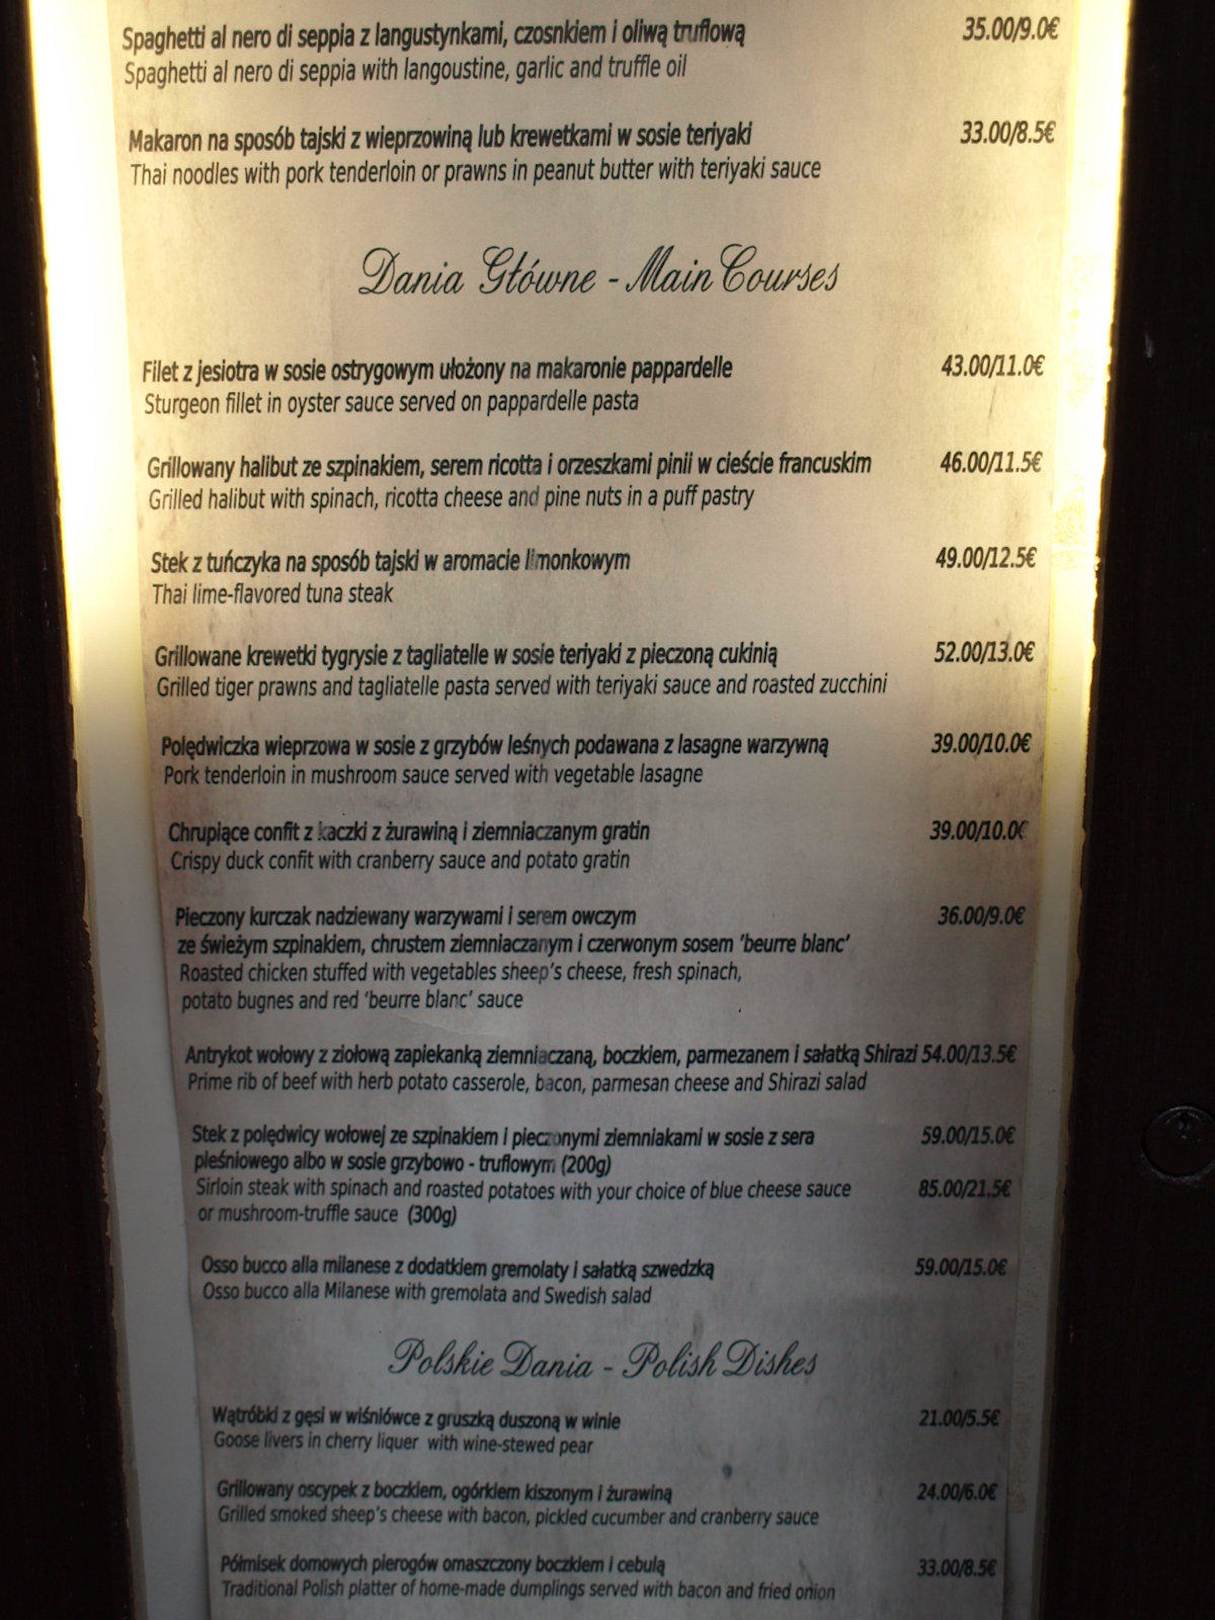 Spaghetti al nero di seppia z langustynkami, czosnkiem i oliwą truflową 35.00/9.0€
Spaghetti al nero di seppia with langoustine, garlic and truffle oil
Makaron na sposób tajski z wieprzowiną lub krewetkami w sosie teriyaki 33.00/8.5€
Thai noodles with pork tenderloin or prawns in peanut butter with teriyaki sauce
Dania Główne - Main Courses
Filet z jesiotra w sosie ostrygowym ułożony na makaronie pappardelle 43.00/11.0€
Sturgeon fillet in oyster sauce served on pappardelle pasta
Grillowany halibut ze szpinakiem, serem ricotta i orzeszkami pinii w cieście francuskim 46.00/11.5€
Grilled halibut with spinach, ricotta cheese and pine nuts in a puff pastry
Stek z tuńczyka na sposób tajski w aromacie limonkowym 49.00/12.5€
Thai lime-flavored tuna steak
Grillowane krewetki tygrysie z tagliatelle w sosie teriyaki z pieczoną cukinią 52.00/13.0€
Grilled tiger prawns and tagliatelle pasta served with teriyaki sauce and roasted zucchini
Polędwiczka wieprzowa w sosie z grzybów leśnych podawana z lasagne warzywną 39.00/10.0€
Pork tenderloin in mushroom sauce served with vegetable lasagne
Chrupiące confit z kaczki z żurawiną i ziemniaczanym gratin 39.00/10.0€
Crispy duck confit with cranberry sauce and potato gratin
Pieczony kurczak nadziewany warzywami i serem owczym 36.00/9.0€
ze świeżym szpinakiem, chrustem ziemniaczanym i czerwonym sosem 'beurre blanc'
Roasted chicken stuffed with vegetables sheep's cheese, fresh spinach,
potato bugnes and red 'beurre blanc' sauce
Antrykot wołowy z ziołową zapiekanką ziemniaczaną, boczkiem, parmezanem i sałatką Shirazi 54.00/13.5€
Prime rib of beef with herb potato casserole, bacon, parmesan cheese and Shirazi salad
Stek z polędwicy wołowej ze szpinakiem i pieczonymi ziemniakami w sosie z sera 59.00/15.0€
pleśniowego albo w sosie grzybowo - truflowym (200g)
Sirloin steak with spinach and roasted potatoes with your choice of blue cheese sauce 85.00/21.5€
or mushroom-truffle sauce (300g)
Osso bucco alla milanese z dodatkiem gremolaty i sałatką szwedzką 59.00/15.0€
Osso bucco alla Milanese with gremolata and Swedish salad
Polskie Dania - Polish Dishes
Wątróbki z gęsi w wiśniówce z gruszką duszoną w winie 21.00/5.5€
Goose livers in cherry liquer with wine-stewed pear
Grillowany oscypek z boczkiem, ogórkiem kiszonym i żurawiną 24.00/6.0€
Grilled smoked sheep's cheese with bacon, pickled cucumber and cranberry sauce
Półmisek domowych pierogów omaszczony boczkiem i cebulą 33.00/8.5€
Traditional Polish platter of home-made dumplings served with bacon and fried onion